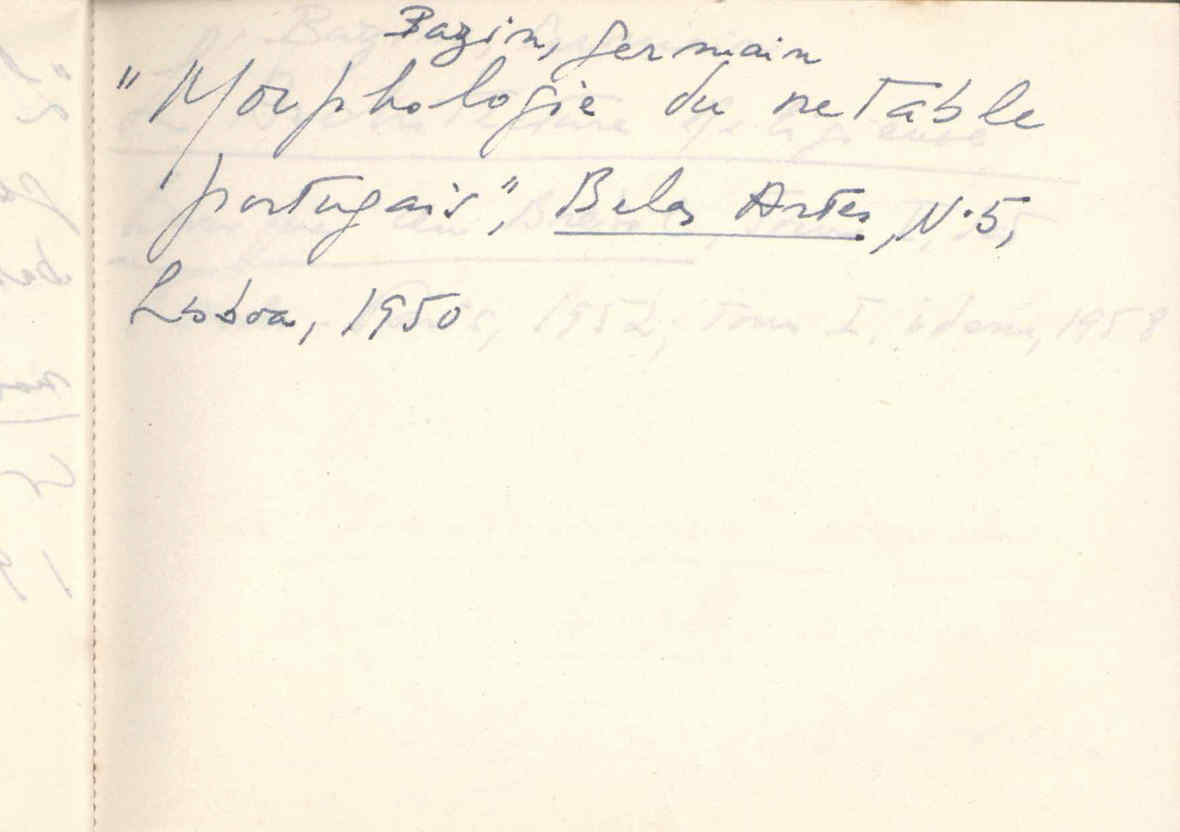 Bazin, Germain
"Morphologie du retable
portugais", Belas Artes, Nº 5,
Lisboa, 1950